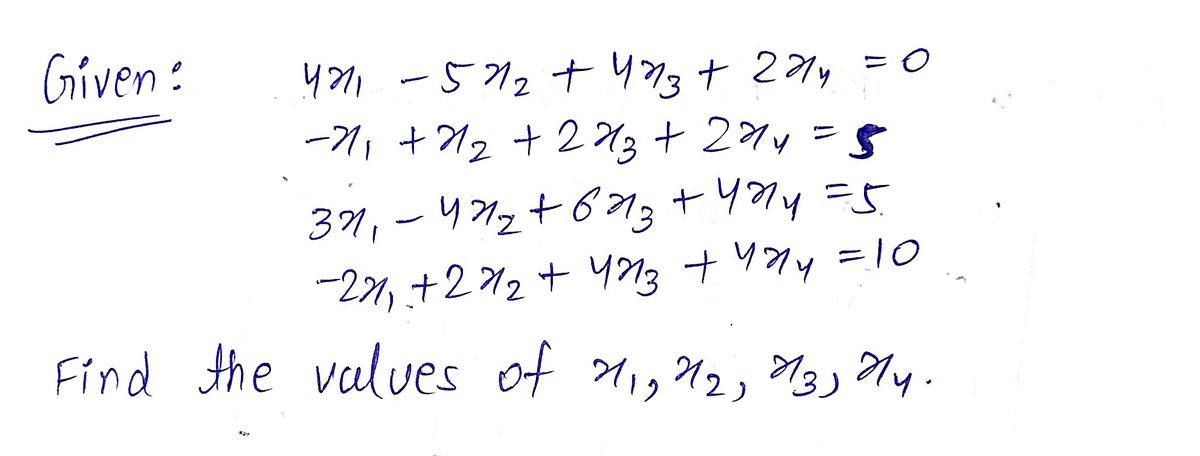 Given: 4x₁ - 5x₂ + 4x₃ + 2x₄ = 0
-x₁ + x₂ + 2x₃ + 2x₄ = 5
3x₁ - 4x₂ + 6x₃ + 4x₄ = 5
-2x₁ + 2x₂ + 4x₃ + 4x₄ = 10
Find the values of x₁, x₂, x₃, x₄.